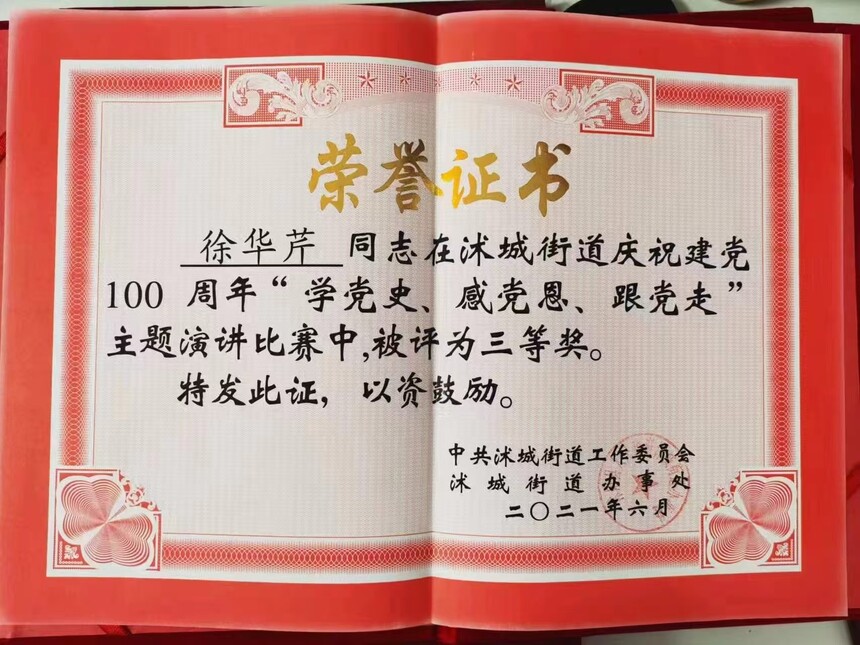 荣誉证书
徐华芹 同志在沭城街道庆祝建党
100 周年“学党史、感党恩、跟党走”
主题演讲比赛中,被评为三等奖。
特发此证，以资鼓励。
中共沭城街道工作委员会
沭城街道办事处
二〇二一年六月